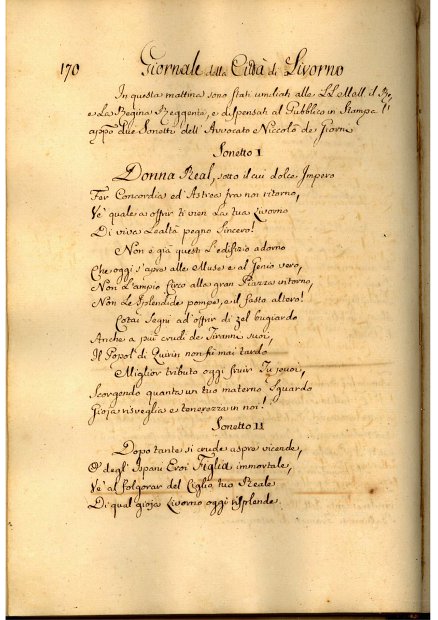 170 Giornale della Città di Livorno
In questa mattina sono stati umiliati alle LL. Mall. il Re,
e La Regina Reggente, e dispensati al Pubblico in Stampa gl'
appo Due Sonetti dell'Avvocato Niccolò de Giorni
Sonetto I
Donna Real, sotto il cui dolce Impero
Fer Concordia ed' Astrea fra noi ritorno,
Ve' quale a offrir ti vien La tua Livorno
Di viva Lealtà pegno Sincero!
Non è già questi L'edifizio adorno
Che oggi s'apre alle Muse e al Genio vero,
Non L'ampio Circo alla gran Piazza intorno,
Non Le Splendide pompe, e il fasto altero!
Cotai Segni ad' offrir di zel bugiardo
Anche a più crudi de Tiranni suoi,
Il Popol' di Quirin non fu mai tardo
Miglior tributo oggi fruir Tu puoi,
Scorgendo quanta un tuo materno Sguardo
Gioja risveglia e tenerezza in noi!
Sonetto II
Dopo tante si crude aspre vicende,
O' degl' Ispani Eroi Figlia immortale,
Ve' al folgorar del Ciglio tuo Reale
Di qual gioja Livorno oggi risplende